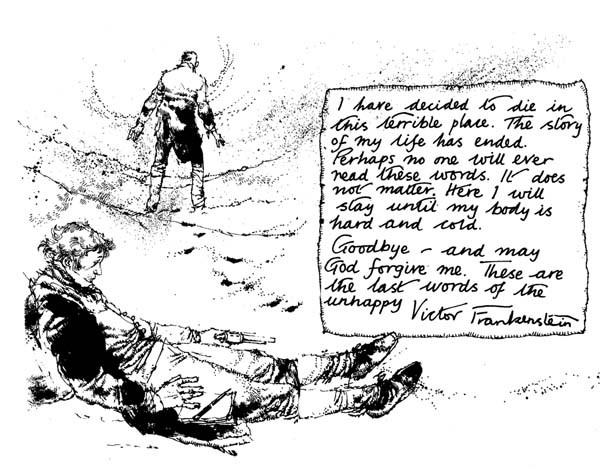 I have decided to die in
this terrible place. The story
of my life has ended.
Perhaps no one will ever
read these words. It does
not matter. Here I will
stay until my body is
hard and cold.
Goodbye – and may
God forgive me. These are
the last words of the
unhappy Victor Frankenstein